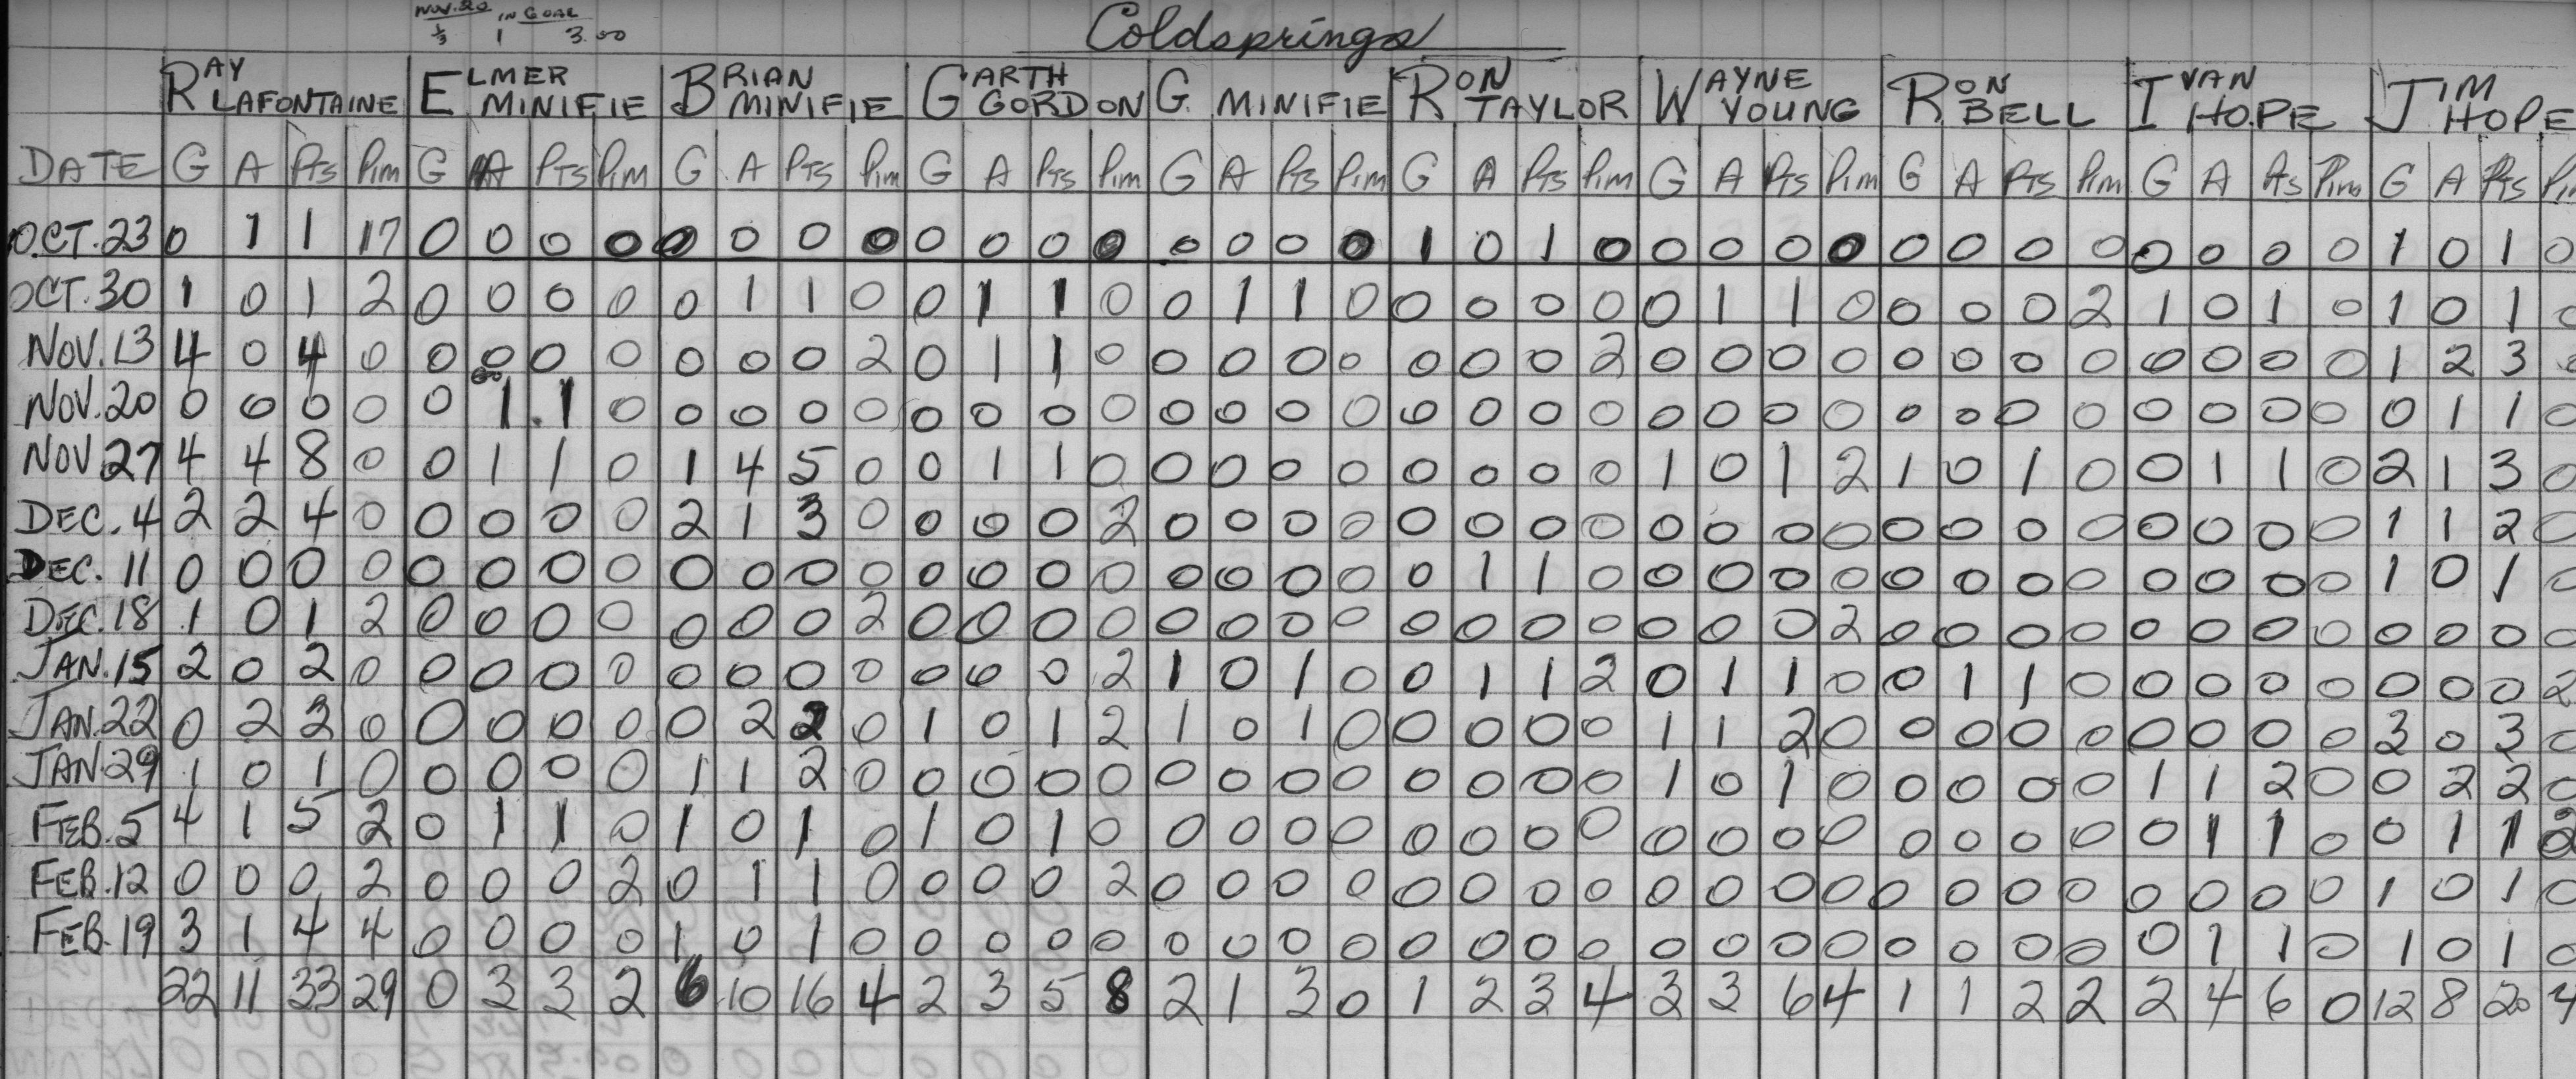 NOV. 20 IN GOAL
⅓ 1 3.00
Coldsprings
RAY LAFONTAINE ELMER MINIFIE BRIAN MINIFIE GARTH GORDON G. MINIFIE RON TAYLOR WAYNE YOUNG RON BELL IVAN HOPE JIM HOPE
DATE G A PTS PIM G A PTS PIM G A PTS PIM G A PTS PIM G A PTS PIM G A PTS PIM G A PTS PIM G A PTS PIM G A PTS PIM G A PTS
OCT. 23 0 1 1 17 0 0 0 0 0 0 0 0 0 0 0 0 0 0 0 0 1 0 1 0 0 0 0 0 0 0 0 0 0 0 0 0 1 0 1 0
OCT. 30 1 0 1 2 0 0 0 0 0 1 1 0 0 1 1 0 0 1 1 0 0 0 0 0 0 1 1 0 0 0 0 2 1 0 1 0 1 0 1 0
NOV. 13 4 0 4 0 0 0 0 0 0 0 0 2 0 1 1 0 0 0 0 0 0 0 0 2 0 0 0 0 0 0 0 0 0 0 0 0 1 2 3
NOV. 20 0 0 0 0 0 1 1 0 0 0 0 0 0 0 0 0 0 0 0 0 0 0 0 0 0 0 0 0 0 0 0 0 0 0 0 0 0 1 1 0
NOV 27 4 4 8 0 0 1 1 0 1 4 5 0 0 1 1 0 0 0 0 0 0 0 0 0 1 0 1 2 1 0 1 0 0 1 1 0 2 1 3 0
DEC. 4 2 2 4 0 0 0 0 0 2 1 3 0 0 0 0 2 0 0 0 0 0 0 0 0 0 0 0 0 0 0 0 0 0 0 0 0 1 1 2 0
DEC. 11 0 0 0 0 0 0 0 0 0 0 0 0 0 0 0 0 0 0 0 0 0 1 1 0 0 0 0 0 0 0 0 0 0 0 0 0 1 0 1 0
DEC. 18 1 0 1 2 0 0 0 0 0 0 0 2 0 0 0 0 0 0 0 0 0 0 0 0 0 0 0 2 0 0 0 0 0 0 0 0 0 0 0 0
JAN. 15 2 0 2 0 0 0 0 0 0 0 0 0 0 0 0 2 1 0 1 0 0 1 1 2 0 1 1 0 0 1 1 0 0 0 0 0 0 0 0 2
JAN. 22 0 2 2 0 0 0 0 0 0 2 2 0 1 0 1 2 1 0 1 0 0 0 0 0 1 1 2 0 0 0 0 0 0 0 0 0 3 0 3 0
JAN. 29 1 0 1 0 0 0 0 0 1 1 2 0 0 0 0 0 0 0 0 0 0 0 0 0 1 0 1 0 0 0 0 0 1 1 2 0 0 2 2 0
FEB. 5 4 1 5 2 0 1 1 0 1 0 1 0 1 0 1 0 0 0 0 0 0 0 0 0 0 0 0 0 0 0 0 0 0 1 1 0 0 1 1 2
FEB. 12 0 0 0 2 0 0 0 2 0 1 1 0 0 0 0 2 0 0 0 0 0 0 0 0 0 0 0 0 0 0 0 0 0 0 0 0 1 0 1 0
FEB. 19 3 1 4 4 0 0 0 0 1 0 1 0 0 0 0 0 0 0 0 0 0 0 0 0 0 0 0 0 0 0 0 0 0 1 1 0 1 0 1 0
22 11 33 29 0 3 3 2 6 10 16 4 2 3 5 8 2 1 3 0 1 2 3 4 3 3 6 4 1 1 2 2 2 4 6 0 12 8 20 4